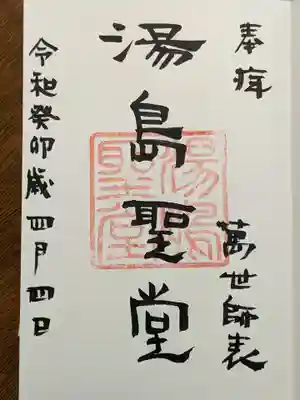 奉拝
萬世師表
湯島聖堂
令和癸卯歳四月四日
湯島聖堂